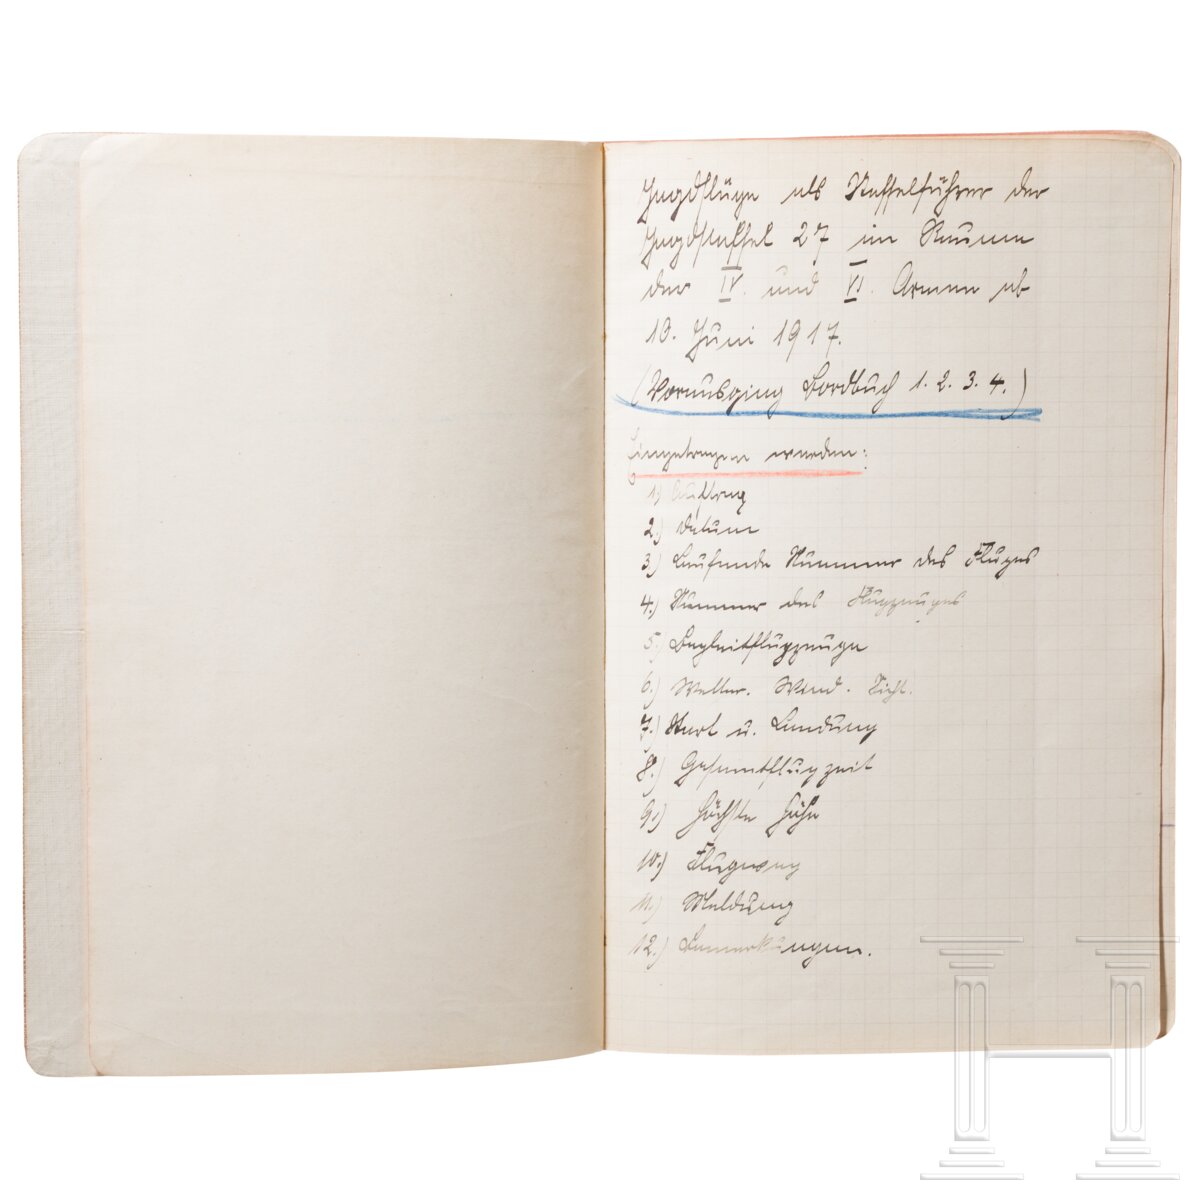 Jagdflüge als Staffelführer der
Jagdstaffel 27 im Raume
der IV. und VI. Armee ab
10. Juni 1917.
(Vorausging Bordbuch 1. 2. 3. 4.)
Eingetragen werden:
1.) Auftrag
2.) Datum
3.) Laufende Nummer des Fluges
4.) Nummer des Flugzeuges
5.) Begleitflugzeuge
6.) Wetter. Wind. Sicht.
7.) Start u. Landung
8.) Gesamtflugzeit
9.) Höchste Höhe
10.) Flugweg
11.) Meldung
12.) Bemerkungen.